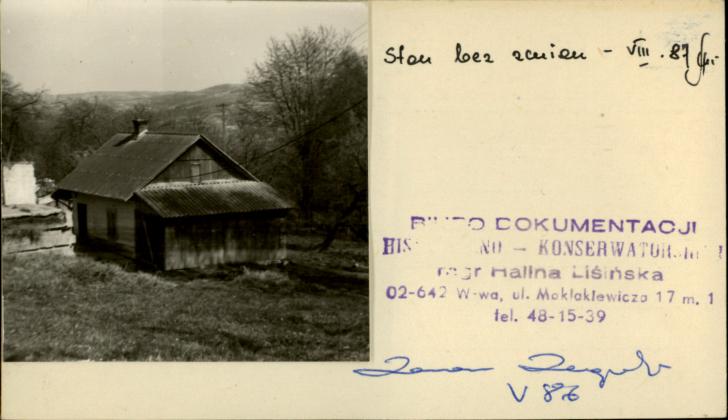 Stan bez zmian - VIII. 87
BIURO DOKUMENTACJI
HIS NO - KONSERWATOR
mgr Halina Lisińska
02-642 W-wa, ul. Mokłakiewicza 17 m. 1
tel. 48-15-39
V 86